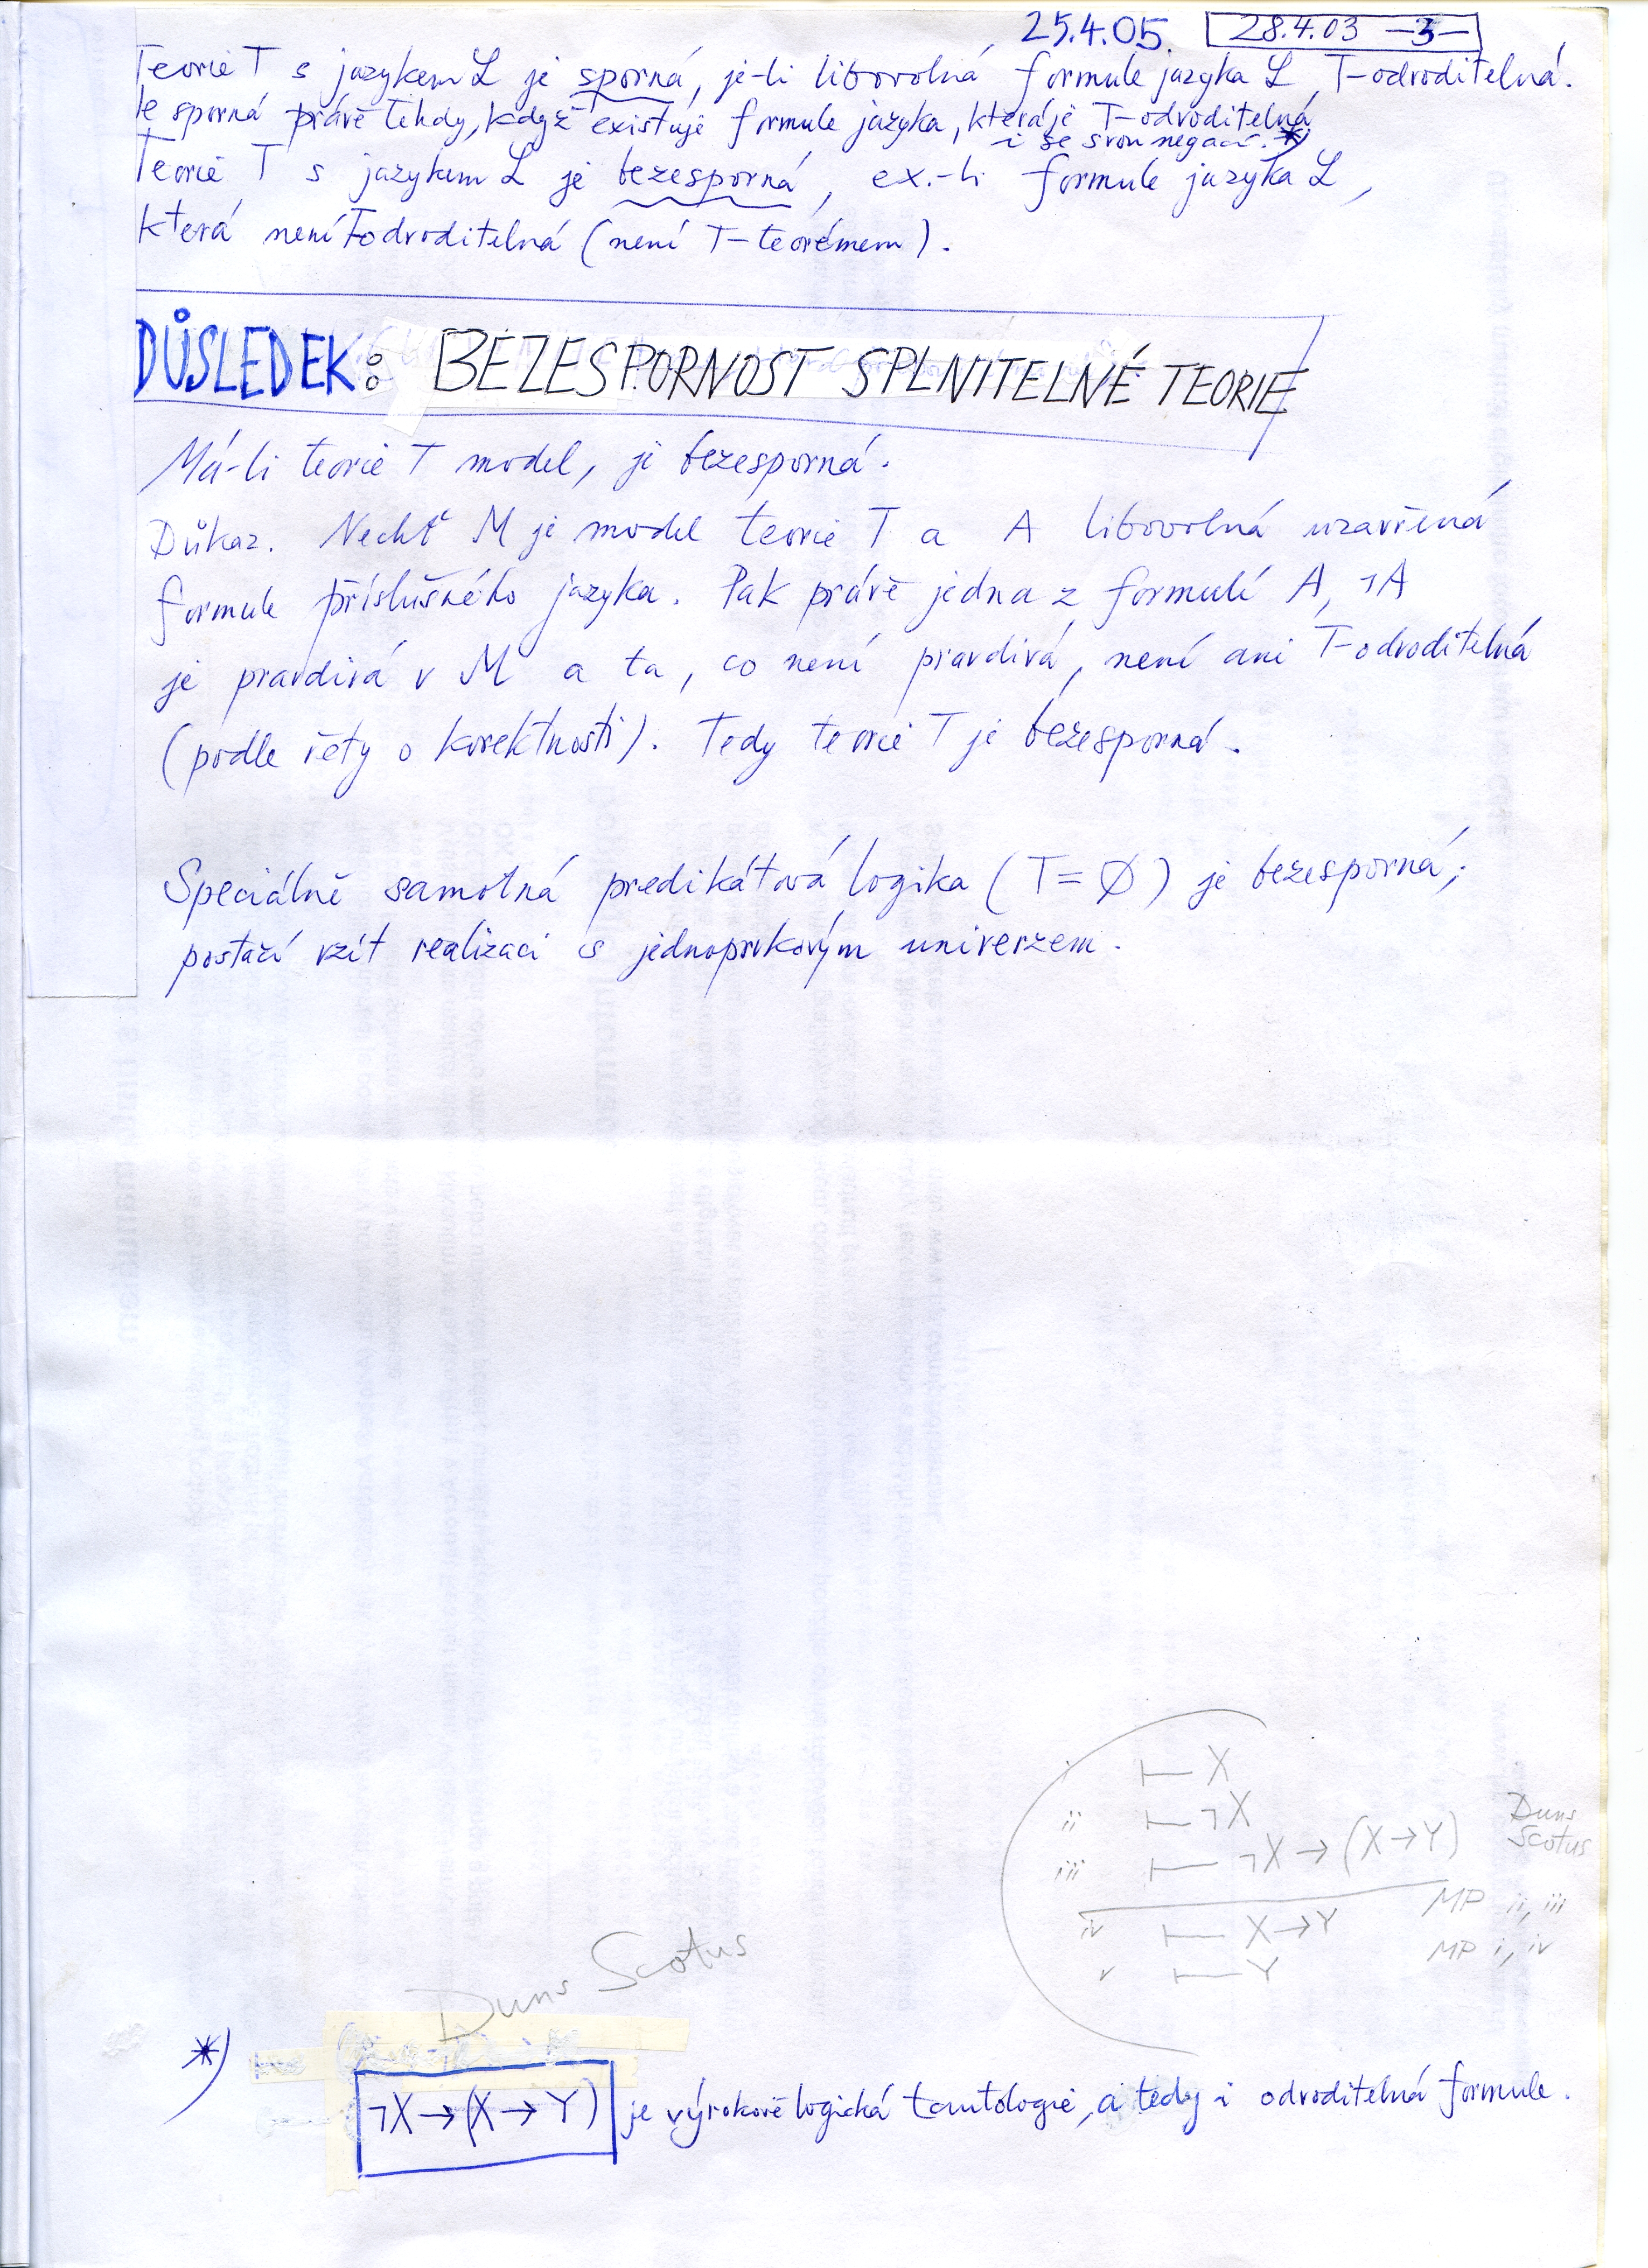 25.4.05. 28.4.03 —3—
Teorie T s jazykem L je sporná, je-li libovolná formule jazyka L T-odvoditelná.
Je sporná právě tehdy, když existuje formule jazyka, která je T-odvoditelná
i se svou negací. *)
Teorie T s jazykem L je bezesporná, ex.-li formule jazyka L,
která není T-odvoditelná (není T-teorémem).
DŮSLEDEK: BEZESPORNOST SPLNITELNÉ TEORIE
Má-li teorie T model, je bezesporná.
Důkaz. Nechť M je model teorie T a A libovolná uzavřená
formule příslušného jazyka. Pak právě jedna z formulí A, ¬A
je pravdivá v M a ta, co není pravdivá, není ani T-odvoditelná
(podle věty o korektnosti). Tedy teorie T je bezesporná.
Speciálně samotná predikátová logika (T=∅) je bezesporná;
postačí vzít realizaci s jednoprvkovým univerzem.
i ⊢ X
ii ⊢ ¬X
iii ⊢ ¬X → (X→Y) Duns Scotus
iv ⊢ X→Y MP ii, iii
v ⊢ Y MP i, iv
Duns Scotus
*)
¬X → (X → Y) je výrokově logická tautologie, a tedy i odvoditelná formule.